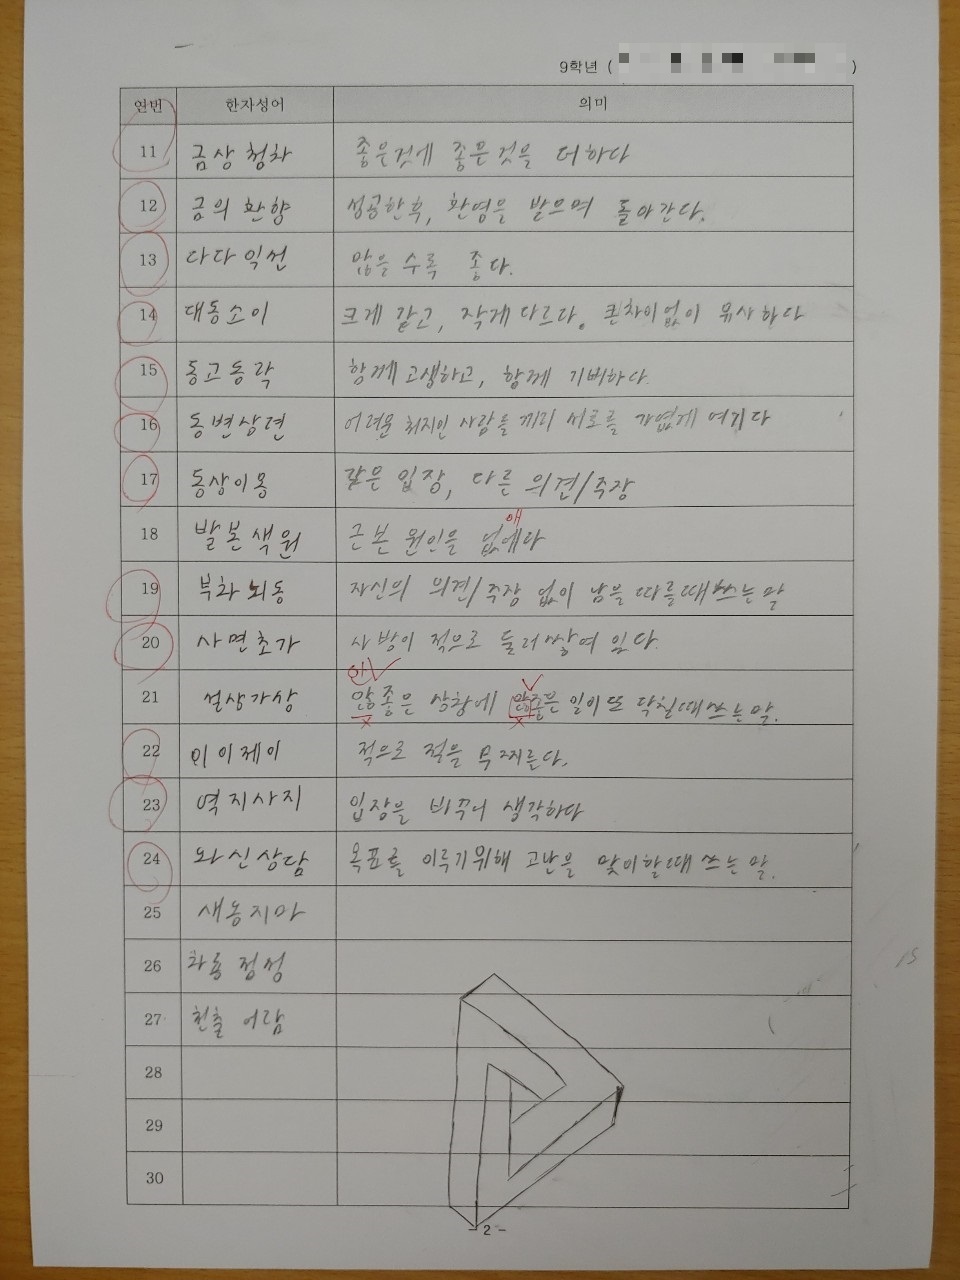 9학년 ( )
연번 한자성어 의미
11 금상첨화 좋은것에 좋은것을 더하다
12 금의환향 성공한후, 환영을 받으며 돌아간다.
13 다다익선 많을 수록 좋다.
14 대동소이 크게 같고, 작게다르다. 큰차이없이 유사하다
15 동고동락 함께고생하고, 함께 기뻐하다.
16 동변상련 어려운 처지인 사람들 끼리 서로를 가엾게 여기다
17 동상이몽 같은 입장, 다른 의견/주장
애
18 발본색원 근본 원인을 없에다
19 부화뇌동 자신의 의견/주장 없이 남을 따를때쓰는말
20 사면초가 사방이 적으로 둘러쌓여 있다.
안
21 설상가상 않좋은 상황에 않좋은 일이 또 닥칠때쓰는말.
22 이이제이 적으로 적을 무찌른다.
23 역지사지 입장을 바꾸어 생각하다
24 와신상담 목표를 이루기위해 고난을 맞이할때 쓰는말.
25 새옹지마
26 화룡 점정
27 청출 어람
28
29
30
- 2 -